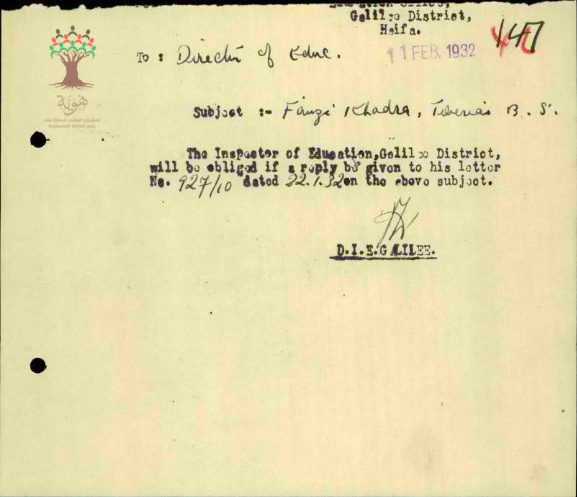 Education Office,
Galilee District,
Haifa.
147
11 FEB. 1932
To : Director of Educ.
هوية
Subject :- Fauzi Khadra, Tiberias B. S.
The Inspector of Education, Galilee District,
will be obliged if a reply be given to his letter
No. 927/10 dated 22.1.32 on the above subject.
D.I.E.GALILEE.